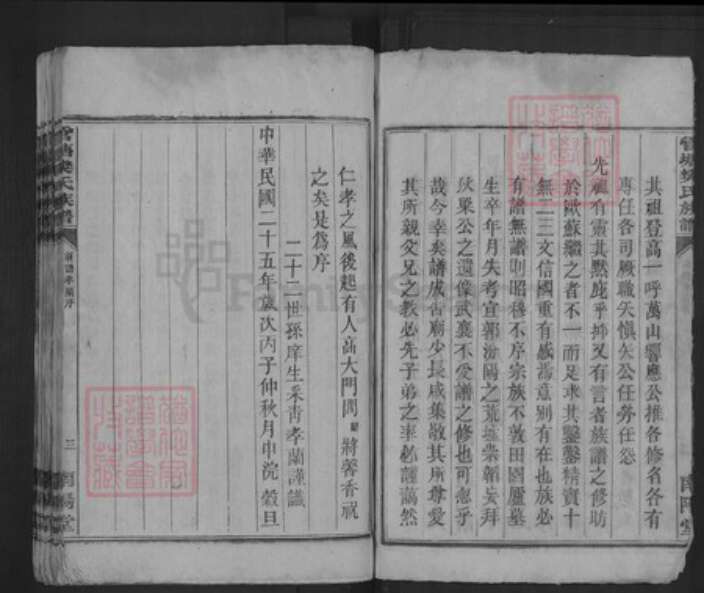 其祖登高一呼萬山響應公推各修名各有
專任各司厥職矢慎矢公任勞任怨
先祖有靈其默庇乎抑又有言者族譜之修昉
於歐蘇繼之者不一而足求其鑿鑿精實十
無二三文信國重有感焉意別有在也族必
有譜無譜則昭穆不序宗族不敦田園廬墓
生卒年月失考宜郭汾陽之荒墟崇韜妄拜
狄梁公之遺像武襄不愛譜之修也可忽乎
哉今幸矣譜成告廟少長咸集敬其所尊愛
其所親父兄之教必先子弟之率必謹藹然
南陽堂
仁孝之風後起有人高大門閭 將馨香祝
之矣是為序
二十二世孫庠生采青孝蘭謹識
中華民國二十五年歲次丙子仲秋月中浣 穀旦
氏族譜
三
南陽堂